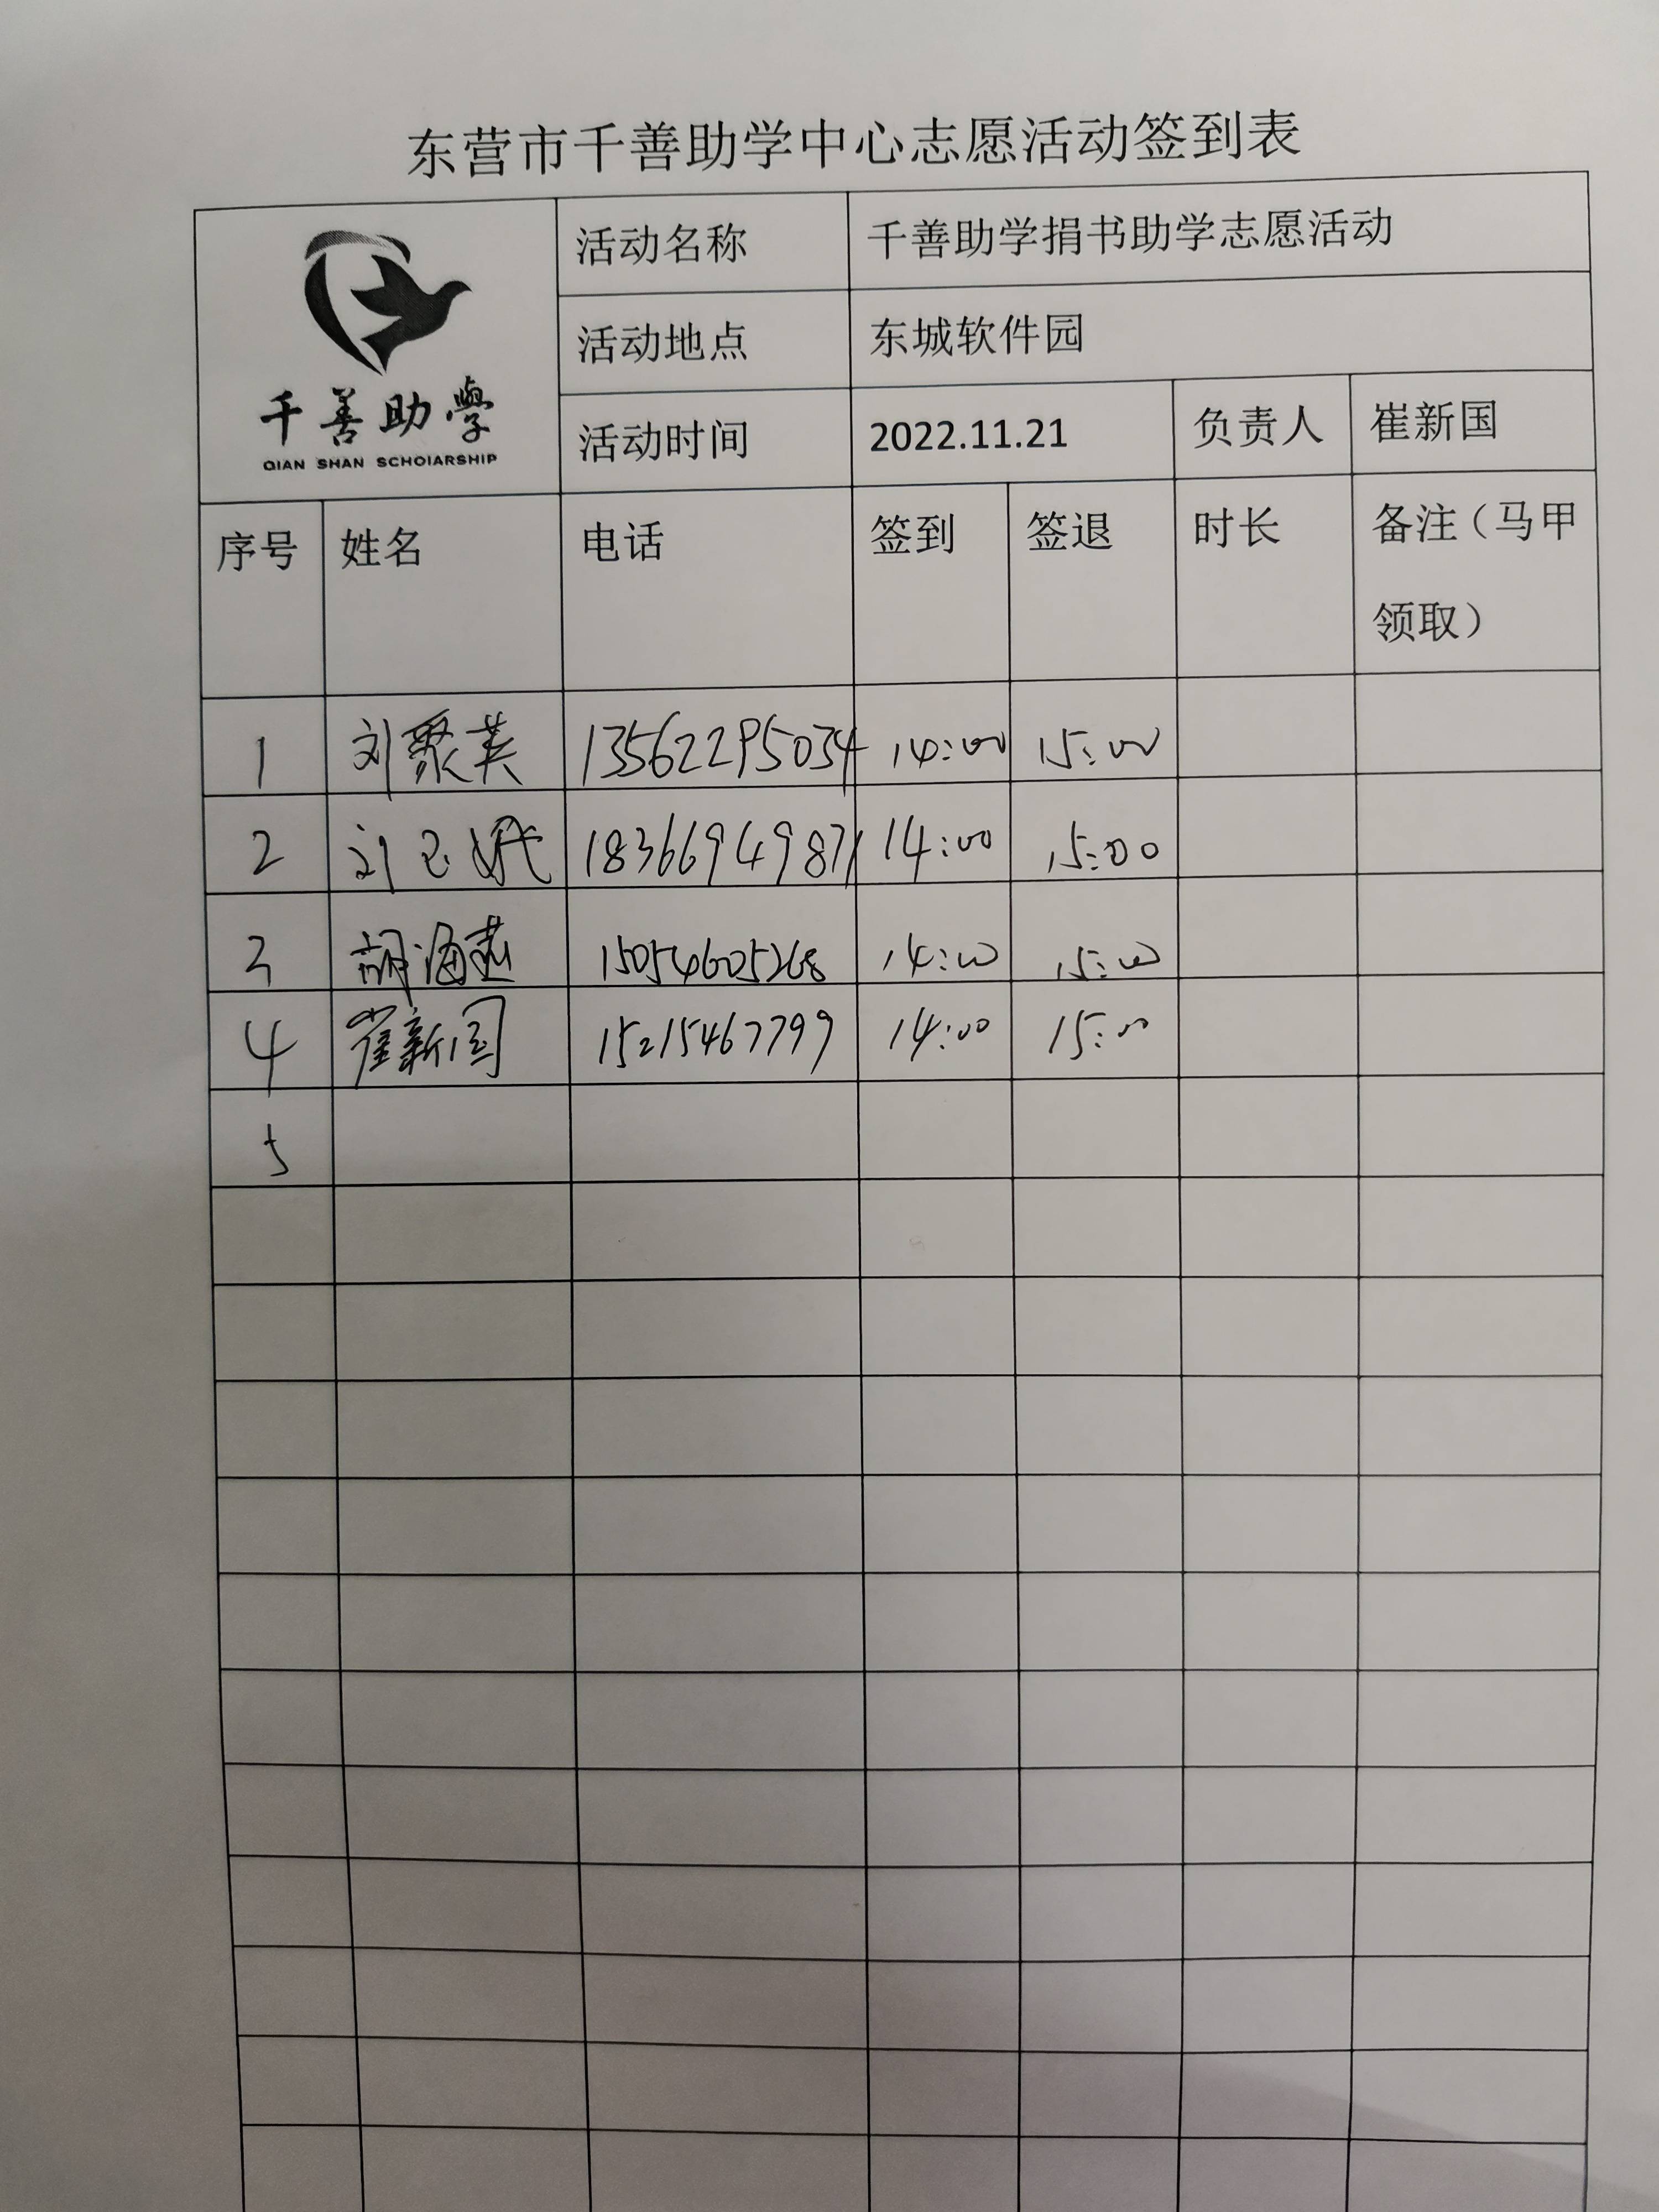 东营市千善助学中心志愿活动签到表
千善助學
QIAN SHAN SCHOIARSHIP
活动名称 千善助学捐书助学志愿活动
活动地点 东城软件园
活动时间 2022.11.21 负责人 崔新国
序号 姓名 电话 签到 签退 时长 备注（马甲
领取）
1 刘聚英 13562295034 14:00 15:00
2 刘 18366949871 14:00 15:00
3 胡海燕 15054605268 14:00 15:00
4 崔新国 15215467799 14:00 15:00
5